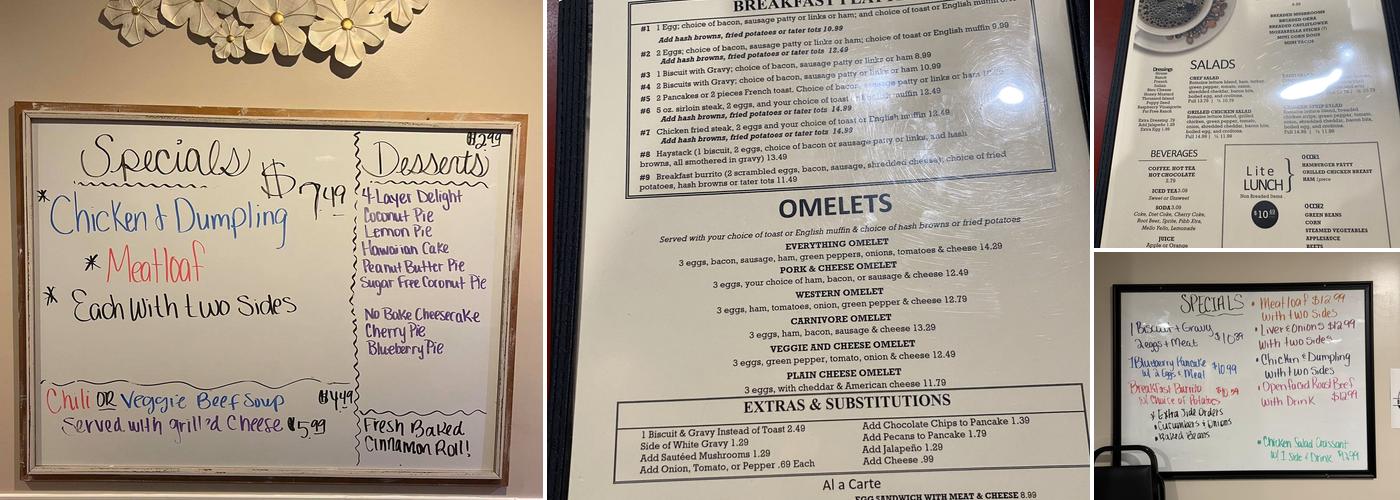 Specials
$7.49
* Chicken & Dumpling
* Meatloaf
* Each With two Sides
Chili OR Veggie Beef Soup $4.49
Served with grill'd Cheese $5.99
$2.99
Desserts
4-Layer Delight
Coconut Pie
Lemon Pie
Hawaiian Cake
Peanut Butter Pie
Sugar Free Coconut Pie
No Bake Cheesecake
Cherry Pie
Blueberry Pie
Fresh Baked
Cinnamon Roll!
#1 1 Egg; choice of bacon, sausage patty or links or ham; and choice of toast or English muffin 9.99
Add hash browns, fried potatoes or tater tots 10.99
#2 2 Eggs; choice of bacon, sausage patty or links or ham; choice of toast or English muffin 9.99
Add hash browns, fried potatoes or tater tots 12.49
#3 1 Biscuit with Gravy; choice of bacon, sausage patty or links or ham 8.99
#4 2 Biscuits with Gravy; choice of bacon, sausage patty or links or ham 10.99
#5 2 Pancakes or 2 pieces French toast. Choice of bacon, sausage patty or links or ham
#6 5 oz. sirloin steak, 2 eggs, and your choice of toast or English muffin 13.49
Add hash browns, fried potatoes or tater tots 14.99
#7 Chicken fried steak, 2 eggs and your choice of toast or English muffin 12.49
Add hash browns, fried potatoes or tater tots 14.99
#8 Haystack (1 biscuit, 2 eggs, choice of bacon or sausage patty or links, and hash
browns, all smothered in gravy) 13.49
#9 Breakfast burrito (2 scrambled eggs, bacon, sausage, shredded cheese); choice of fried
potatoes, hash browns or tater tots 11.49
OMELETS
Served with your choice of toast or English muffin & choice of hash browns or fried potatoes
EVERYTHING OMELET
3 eggs, bacon, sausage, ham, green peppers, onions, tomatoes & cheese 14.29
PORK & CHEESE OMELET
3 eggs, your choice of ham, bacon, or sausage & cheese 12.49
WESTERN OMELET
3 eggs, ham, tomatoes, onion, green pepper & cheese 12.79
CARNIVORE OMELET
3 eggs, ham, bacon, sausage & cheese 13.29
VEGGIE AND CHEESE OMELET
3 eggs, green pepper, tomato, onion & cheese 12.49
PLAIN CHEESE OMELET
3 eggs, with cheddar & American cheese 11.79
EXTRAS & SUBSTITUTIONS
1 Biscuit & Gravy Instead of Toast 2.49
Side of White Gravy 1.29
Add Sautéed Mushrooms 1.29
Add Onion, Tomato, or Pepper .69 Each
Add Chocolate Chips to Pancake 1.39
Add Pecans to Pancake 1.79
Add Jalapeño 1.29
Add Cheese .99
Al a Carte
EGG SANDWICH WITH MEAT & CHEESE 8.99
BREADED MUSHROOMS
BREADED OKRA
BREADED CAULIFLOWER
MOZZARELLA STICKS (7)
MINI CORN DOGS
MINI TACOS
SALADS
Dressings
Ranch
French
Italian
Bleu Cheese
Honey Mustard
Thousand Island
Poppy Seed
Raspberry Vinaigrette
Fat Free Ranch
Extra Dressing .79
Add Jalapeño 1.29
Extra Egg 1.99
CHEF SALAD
Romaine lettuce blend, ham, turkey,
green pepper, tomato,
onion, shredded cheddar, bacon bits,
boiled egg, and croutons.
Full 13.79 | ½ 10.79
GRILLED CHICKEN SALAD
Romaine lettuce blend, grilled
chicken, green pepper, tomato,
onion, shredded cheddar, bacon bits,
boiled egg, and croutons.
Full 14.99 | ½ 11.99
BEVERAGES
COFFEE, HOT TEA
HOT CHOCOLATE
2.79
ICED TEA 3.09
Sweet or Unsweet
SODA 3.09
Coke, Diet Coke, Cherry Coke,
Root Beer, Sprite, Pibb Xtra,
Mello Yello, Lemonade
JUICE
Apple or Orange
Lite
LUNCH
$10.49
HAMBURGER PATTY
GRILLED CHICKEN BREAST
HAM 1piece
GREEN BEANS
CORN
STEAMED VEGETABLES
APPLESAUCE
BEETS
SPECIALS
1 Biscuit + Gravy
2 eggs + Meat $10.99
1 Blueberry Pancake
w/ 2 Eggs & Meat $10.99
Breakfast Burrito
w/ Choice of Potatoes $10.99
* Extra Side Orders
• Cucumbers & Onions
• Baked Beans
• Meatloaf $12.99
with two Sides
• Liver & Onions $12.99
with two Sides
• Chicken & Dumpling
with two Sides
• Openfaced Roast Beef
With Drink $12.99
• Chicken Salad Croissant
w/ 1 Side & Drink $12.99